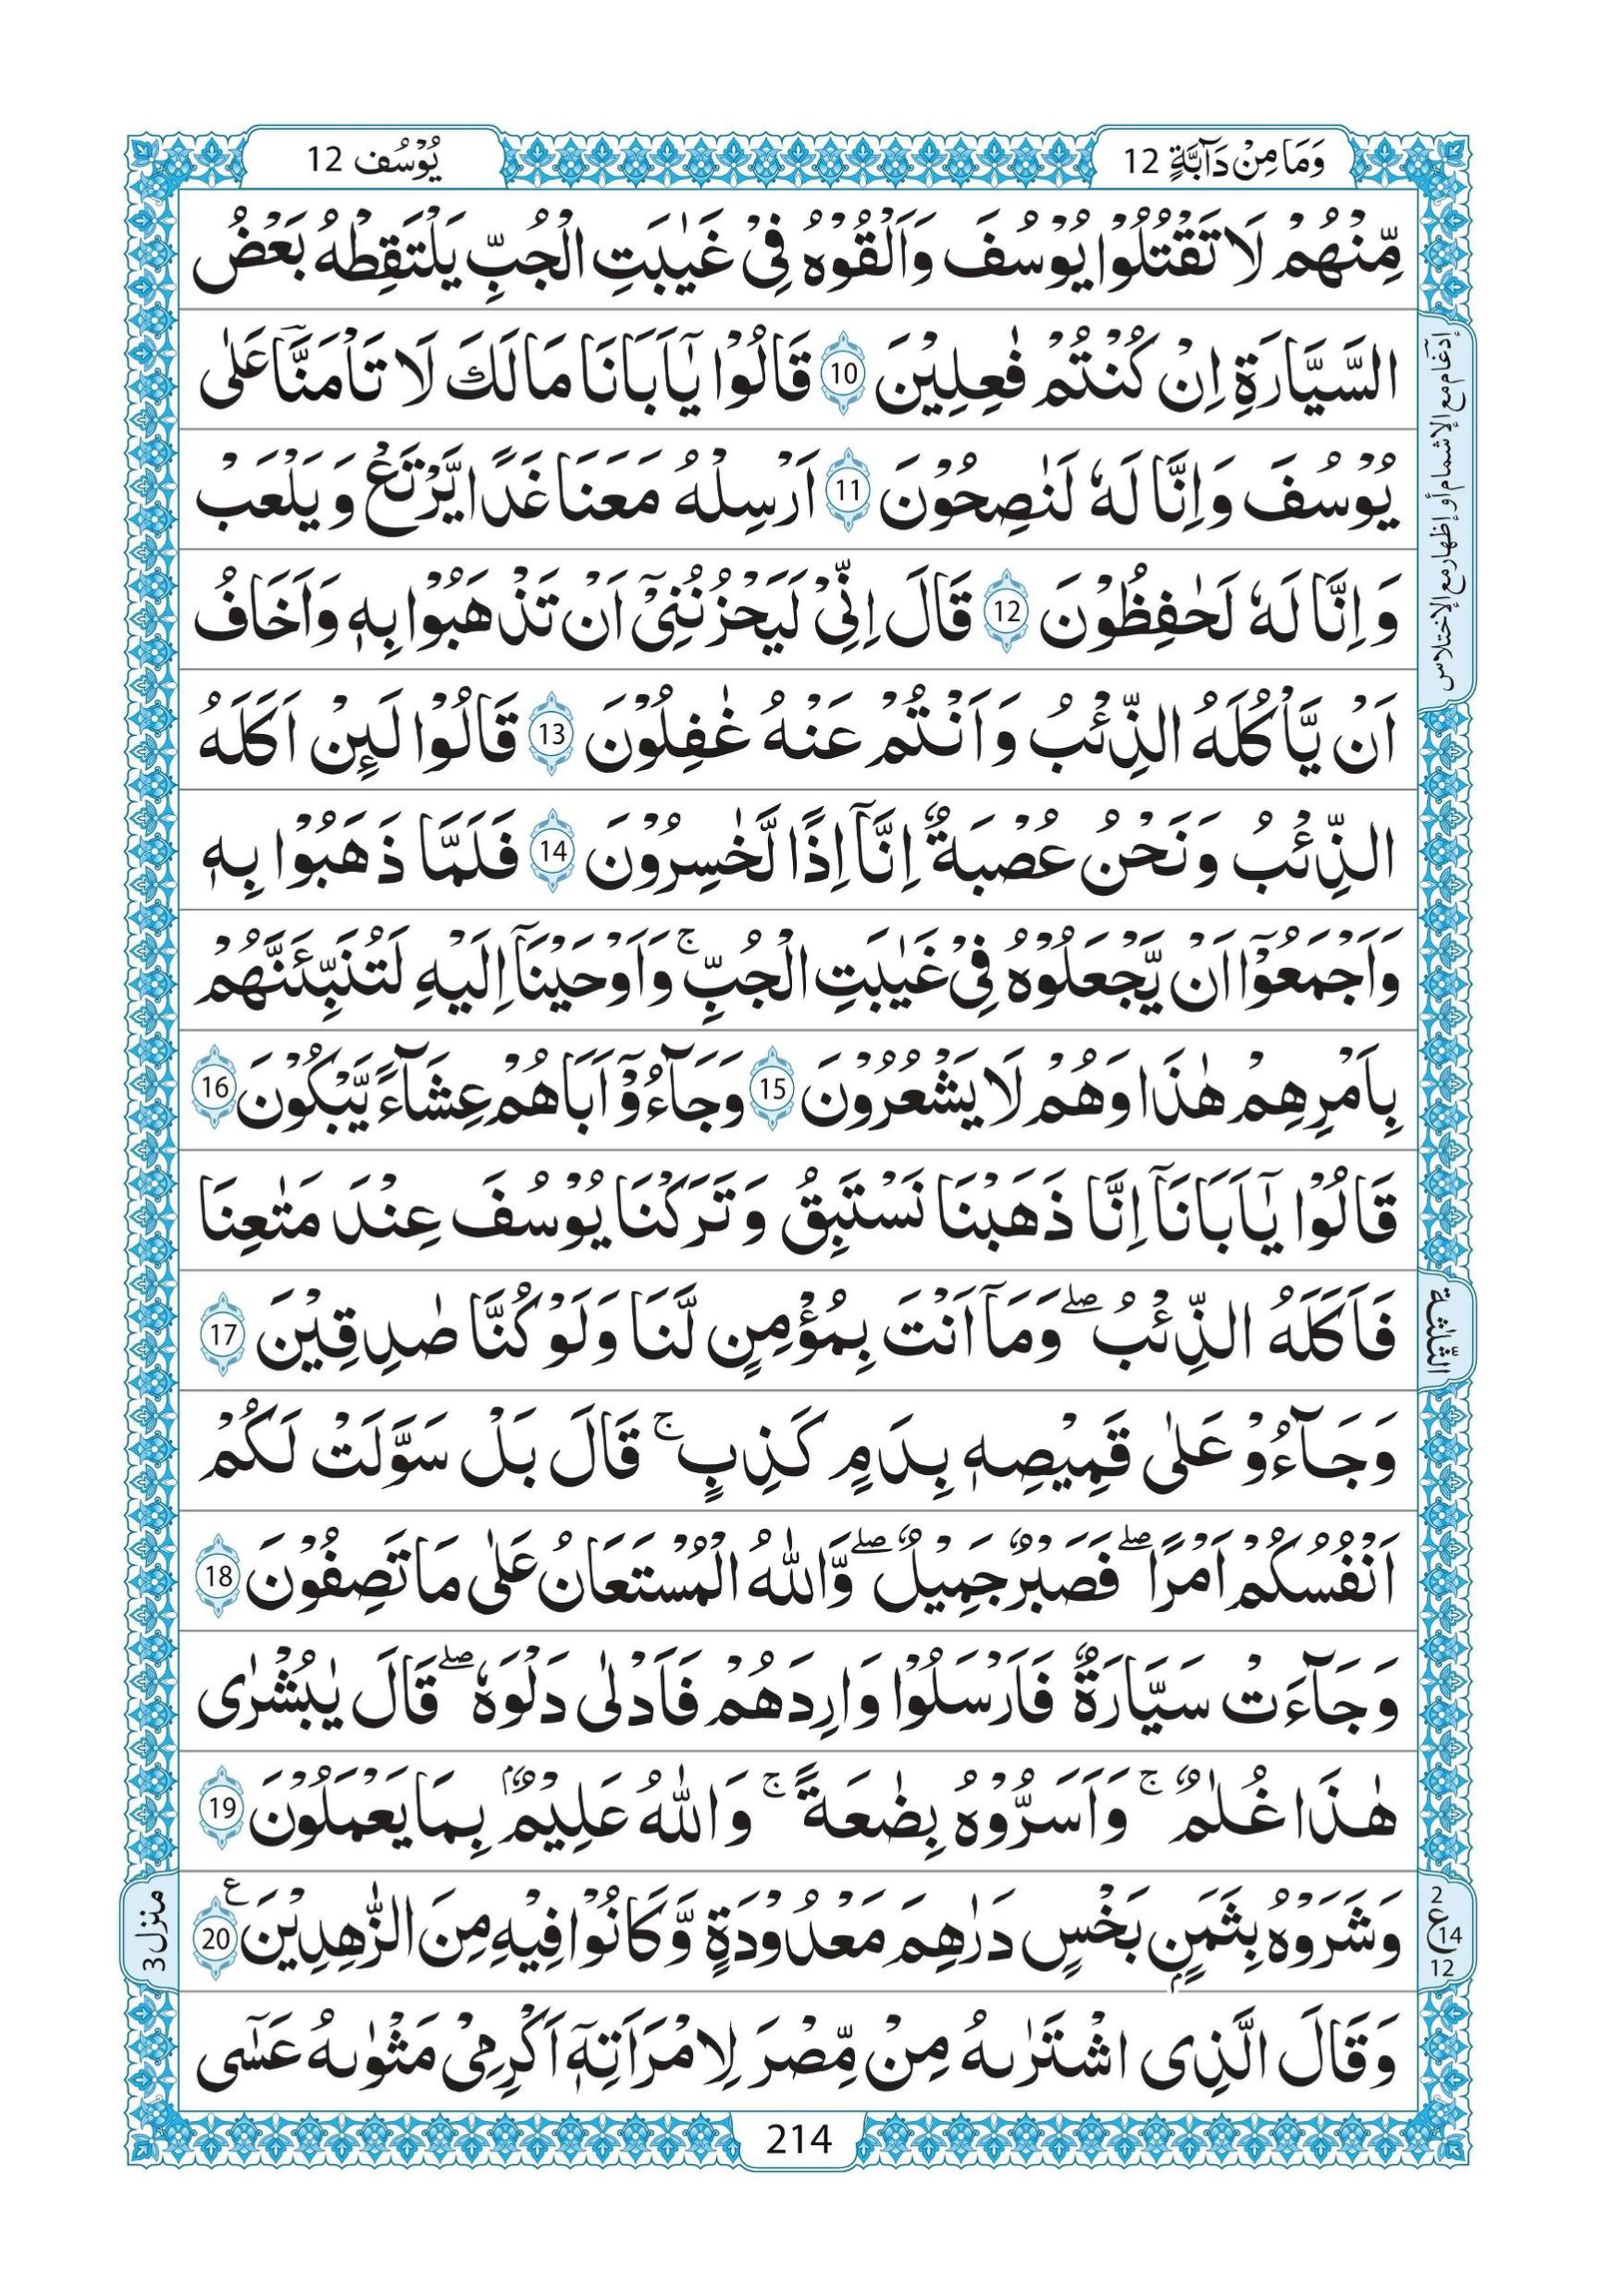 وَمَا مِنْ دَآبَّةٍ 12
يُوْسُف 12
مِّنْهُمْ لَا تَقْتُلُوْا يُوْسُفَ وَاَلْقُوْهُ فِىْ غَيٰبَتِ الْجُبِّ يَلْتَقِطْهُ بَعْضُ
السَّيَّارَةِ اِنْ كُنْتُمْ فٰعِلِيْنَ 10 قَالُوْا يٰٓاَبَانَا مَا لَكَ لَا تَاْمَنَّا عَلٰى
يُوْسُفَ وَاِنَّا لَهٗ لَنٰصِحُوْنَ 11 اَرْسِلْهُ مَعَنَا غَدًا يَّرْتَعْ وَيَلْعَبْ
وَاِنَّا لَهٗ لَحٰفِظُوْنَ 12 قَالَ اِنِّىْ لَيَحْزُنُنِىْٓ اَنْ تَذْهَبُوْا بِهٖ وَاَخَافُ
اَنْ يَّاْكُلَهُ الذِّئْبُ وَاَنْتُمْ عَنْهُ غٰفِلُوْنَ 13 قَالُوْا لَئِنْ اَكَلَهُ
الذِّئْبُ وَنَحْنُ عُصْبَةٌ اِنَّآ اِذًا لَّخٰسِرُوْنَ 14 فَلَمَّا ذَهَبُوْا بِهٖ
وَاَجْمَعُوْٓا اَنْ يَّجْعَلُوْهُ فِىْ غَيٰبَتِ الْجُبِّ ۚ وَاَوْحَيْنَآ اِلَيْهِ لَتُنَبِّئَنَّهُمْ
بِاَمْرِهِمْ هٰذَا وَهُمْ لَا يَشْعُرُوْنَ 15 وَجَآءُوْٓ اَبَاهُمْ عِشَآءً يَّبْكُوْنَ 16
قَالُوْا يٰٓاَبَانَآ اِنَّا ذَهَبْنَا نَسْتَبِقُ وَتَرَكْنَا يُوْسُفَ عِنْدَ مَتٰعِنَا
فَاَكَلَهُ الذِّئْبُ ۖ وَمَآ اَنْتَ بِمُؤْمِنٍ لَّنَا وَلَوْ كُنَّا صٰدِقِيْنَ 17
وَجَآءُوْ عَلٰى قَمِيْصِهٖ بِدَمٍ كَذِبٍ ۚ قَالَ بَلْ سَوَّلَتْ لَكُمْ
اَنْفُسُكُمْ اَمْرًا ۖ فَصَبْرٌ جَمِيْلٌ ۖ وَّاللّٰهُ الْمُسْتَعَانُ عَلٰى مَا تَصِفُوْنَ 18
وَجَآءَتْ سَيَّارَةٌ فَاَرْسَلُوْا وَارِدَهُمْ فَاَدْلٰى دَلْوَهٗ ۖ قَالَ يٰبُشْرٰى
هٰذَا غُلٰمٌ ۚ وَاَسَرُّوْهُ بِضٰعَةً ۚ وَاللّٰهُ عَلِيْمٌۢ بِمَا يَعْمَلُوْنَ 19
وَشَرَوْهُ بِثَمَنٍۢ بَخْسٍ دَرٰهِمَ مَعْدُوْدَةٍ وَّكَانُوْا فِيْهِ مِنَ الزّٰهِدِيْنَ ع 20
وَقَالَ الَّذِى اشْتَرٰىهُ مِنْ مِّصْرَ لِامْرَاَتِهٖٓ اَكْرِمِىْ مَثْوٰىهُ عَسٰٓى
إدغام مع الإشمام أو إظهار مع الإختلاس
الثّلٰثة
2
ع 14
12
منزل 3
214